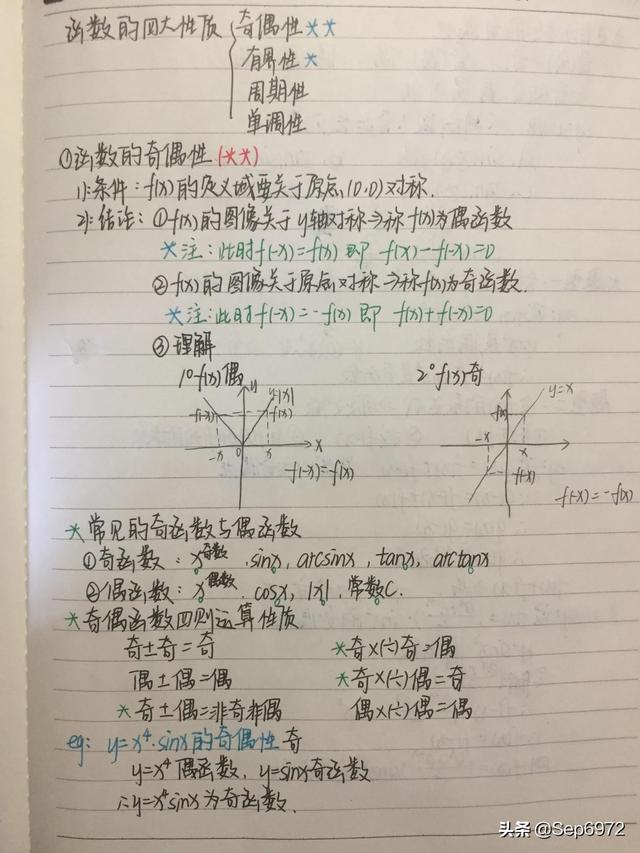 函数的四大性质 { 奇偶性 **
有界性 *
周期性
单调性
①函数的奇偶性 (**)
1):条件：f(x)的定义域要关于原点(0,0)对称.
2):结论：①f(x)的图像关于y轴对称⇒称f(x)为偶函数
*注：此时f(-x)=f(x) 即 f(x)-f(-x)=0
②f(x)的图像关于原点对称⇒称f(x)为奇函数.
*注：此时f(-x)=-f(x) 即 f(x)+f(-x)=0
③理解
1°f(x)偶 2°f(x)奇
y y=|x| y=x
f(-x) f(x) f(x)
-x 0 x x -x x
f(-x)
f(-x)=f(x) f(-x)=-f(x)
*常见的奇函数与偶函数
①奇函数：x^奇数, sinx, arcsinx, tanx, arctanx
②偶函数：x^偶数, cosx, |x|, 常数C.
*奇偶函数四则运算性质
奇±奇=奇 *奇×(÷)奇=偶
偶±偶=偶 *奇×(÷)偶=奇
*奇±偶=非奇非偶 偶×(÷)偶=偶
eg: y=x⁴·sinx的奇偶性 奇
y=x⁴偶函数, y=sinx奇函数
∴y=x⁴sinx为奇函数.
头条 @Sep6972